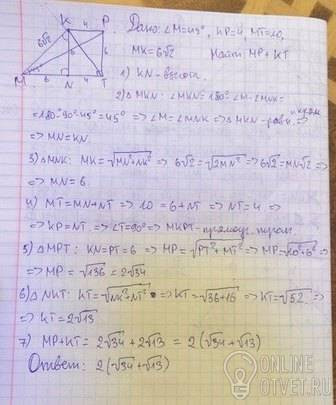 K 4 P
6√2
6
M N T
Дано: ∠M=45°, KP=4, MT=10,
MK=6√2 Найт MP+KT
1) KN-высот.
2) △MKN: ∠MKN=180°-∠M-∠MNK=
=180°-90°-45°=45° => ∠M=∠MNK => △MKN-равн =>
=> MN=KN.
3) △MNK: MK=√MN²+NK² => 6√2=√2MN² => 6√2=MN√2 =>
=> MN=6.
4) MT=MN+NT => 10=6+NT => NT=4 =>
=> KP=NT => ∠T=90° => MKPT-прямоуг.
5) △MPT: KN=PT=6 => MP=√PT²+MT² => MP=√10²+6² =>
=> MP=√136=2√34
6) △NKT: KT=√NK²+NT² => KT=√36+16 => KT=√52 =>
=> KT=2√13
7) MP+KT=2√34+2√13=2(√34+√13)
Ответ: 2(√34+√13)
ONLINE
OTVET.RU